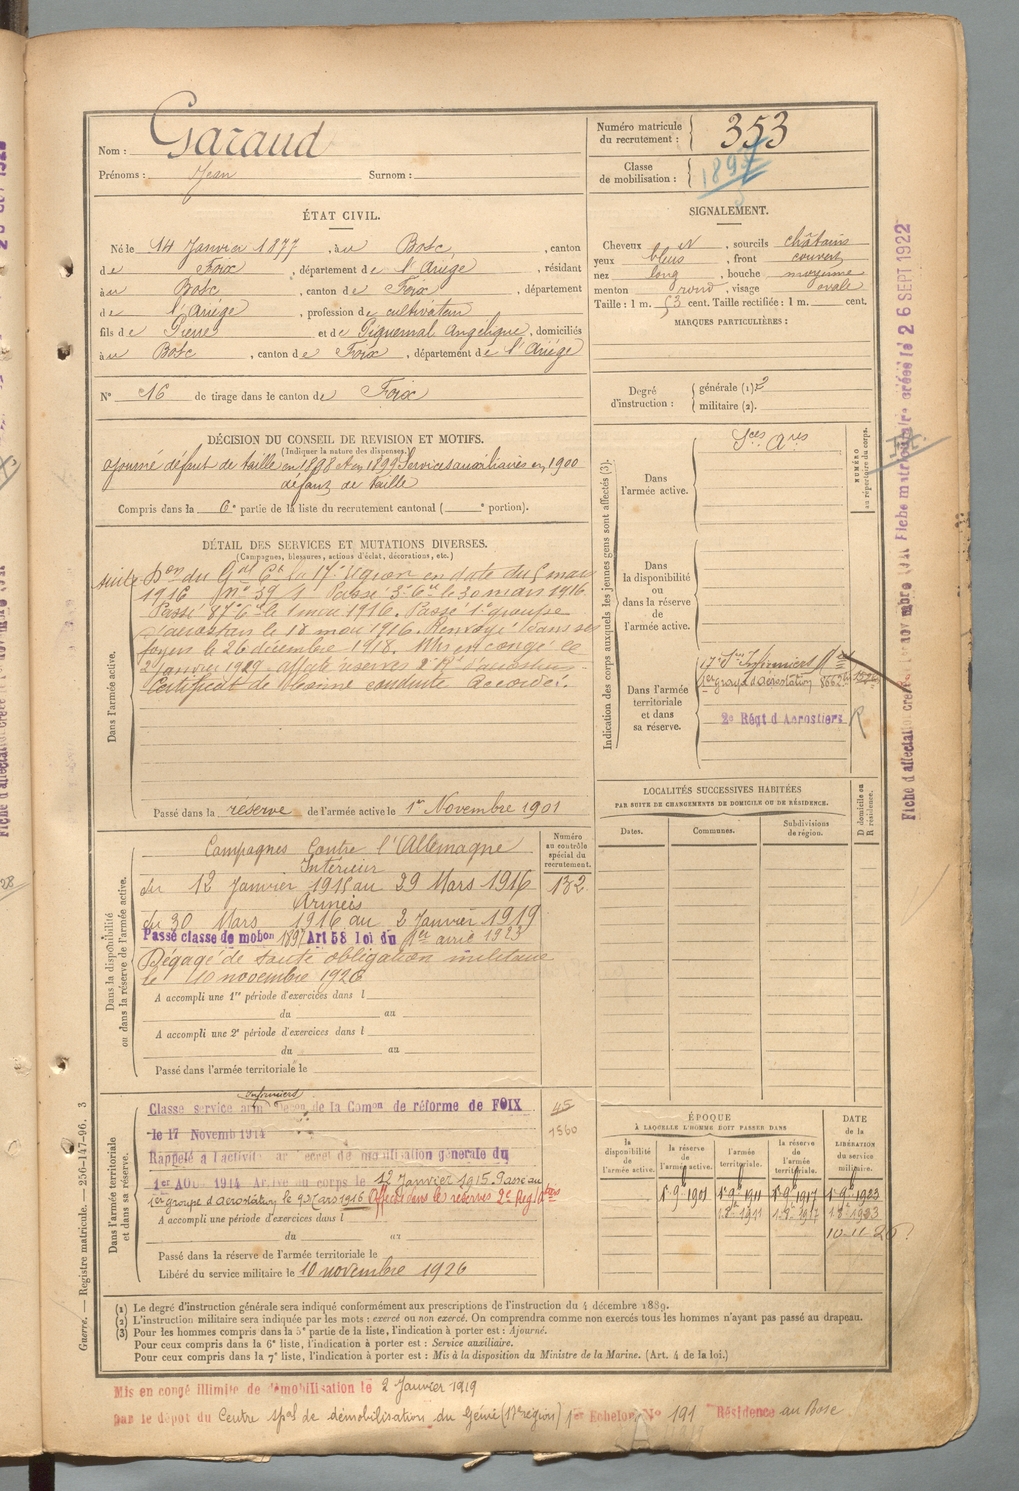 Nom : Garaud
Prénoms : Jean Surnom :
Numéro matricule du recrutement : 353
Classe de mobilisation : 1897
ÉTAT CIVIL.
Né le 14 Janvier 1877, à au Bosc, canton
de Foix, département de l'Ariège, résidant
à au Bosc, canton de Foix, département
de l'Ariège, profession de cultivateur
fils de Pierre et de Piquemal Angélique, domiciliés
à au Bosc, canton de Foix, département de l'Ariège
N° 16 de tirage dans le canton de Foix
SIGNALEMENT.
Cheveux N, sourcils châtains
yeux bleus, front couvert
nez long, bouche moyenne
menton rond, visage ovale
Taille : 1 m. 53 cent. Taille rectifiée : 1 m. cent.
MARQUES PARTICULIÈRES :
Degré d'instruction : générale (1) 2
militaire (2).
DÉCISION DU CONSEIL DE REVISION ET MOTIFS.
(Indiquer la nature des dispenses.)
Ajourné défaut de taille en 1898 et en 1899 Services auxiliaires en 1900
défaut de taille
Compris dans la 6e partie de la liste du recrutement cantonal ( e portion).
DÉTAIL DES SERVICES ET MUTATIONS DIVERSES.
(Campagnes, blessures, actions d'éclat, décorations, etc.)
Dans l'armée active.
suite Don du Gal Ct la 17e région en date du 5 mars
1916 Passé le 30 mars 1916
Passé le 1 mai 1916. Passé 1e groupe
d'aérostation le 18 mai 1916. Renvoyé dans ses
foyers le 26 décembre 1918. Mis en congé le
2 janvier 1929. affecté réserves 2e Rt d'aérostiers.
Certificat de bonne conduite Accordé.
Passé dans la réserve de l'armée active le 1er Novembre 1901
Indication des corps auxquels les jeunes gens sont affectés (3).
Dans l'armée active. Sces Ares
Dans la disponibilité ou dans la réserve de l'armée active.
Dans l'armée territoriale et dans sa réserve.
17e Son Infirmiers
1er groupe d'Aérostation
2e Régt d'Aérostiers R
NUMÉRO au répertoire du corps.
Dans la disponibilité ou dans la réserve de l'armée active.
Campagnes Contre l'Allemagne
Intérieur
du 12 Janvier 1915 au 29 Mars 1916
Armées
du 30 Mars 1916 au 2 Janvier 1919
Passé classe de mobon 1897 Art 58 loi du 1er avril 1923
Dégagé de toute obligation militaire
le 10 novembre 1926
A accompli une 1re période d'exercices dans l
du au
A accompli une 2e période d'exercices dans l
du au
Passé dans l'armée territoriale le
Numéro au contrôle spécial du recrutement.
132
LOCALITÉS SUCCESSIVES HABITÉES
PAR SUITE DE CHANGEMENTS DE DOMICILE OU DE RÉSIDENCE.
Dates. Communes. Subdivisions de région. D domicile ou R résidence.
Dans l'armée territoriale et dans sa réserve.
infirmiers
Classé service arm de la Comon de réforme de FOIX
le 17 Novemb 1914
Rappelé à l'activité par Décret de mobilisation générale du
1er AOU 1914 Arrivé au corps le 12 Janvier 1915. Passé au
1er groupe d'aérostation le 9 Mars 1916 Affecté dans les réserves 2e Régt
A accompli une période d'exercices dans l
du au
Passé dans la réserve de l'armée territoriale le
Libéré du service militaire le 10 novembre 1926
45
1560
ÉPOQUE
À LAQUELLE L'HOMME DOIT PASSER DANS
la disponibilité de l'armée active. la réserve de l'armée active. l'armée territoriale. la réserve de l'armée territoriale.
DATE de la LIBÉRATION du service militaire.
1er 9b 1901 1er 9b 1911 1er 9b 1917 1er 9b 1923
1911 1917 1923
10-11-26
(1) Le degré d'instruction générale sera indiqué conformément aux prescriptions de l'instruction du 4 décembre 1889.
(2) L'instruction militaire sera indiquée par les mots : exercé ou non exercé. On comprendra comme non exercés tous les hommes n'ayant pas passé au drapeau.
(3) Pour les hommes compris dans la 5e partie de la liste, l'indication à porter est : Ajourné.
Pour ceux compris dans la 6e liste, l'indication à porter est : Service auxiliaire.
Pour ceux compris dans la 7e liste, l'indication à porter est : Mis à la disposition du Ministre de la Marine. (Art. 4 de la loi.)
Mis en congé illimité de démobilisation le 2 Janvier 1919
par le dépôt du Centre spal de démobilisation du Génie (17e région) 1er Echelon N° 191 Résidence au Bosc
Guerre. — Registre matricule. — 256-147-96. 3
26 SEPT 1922